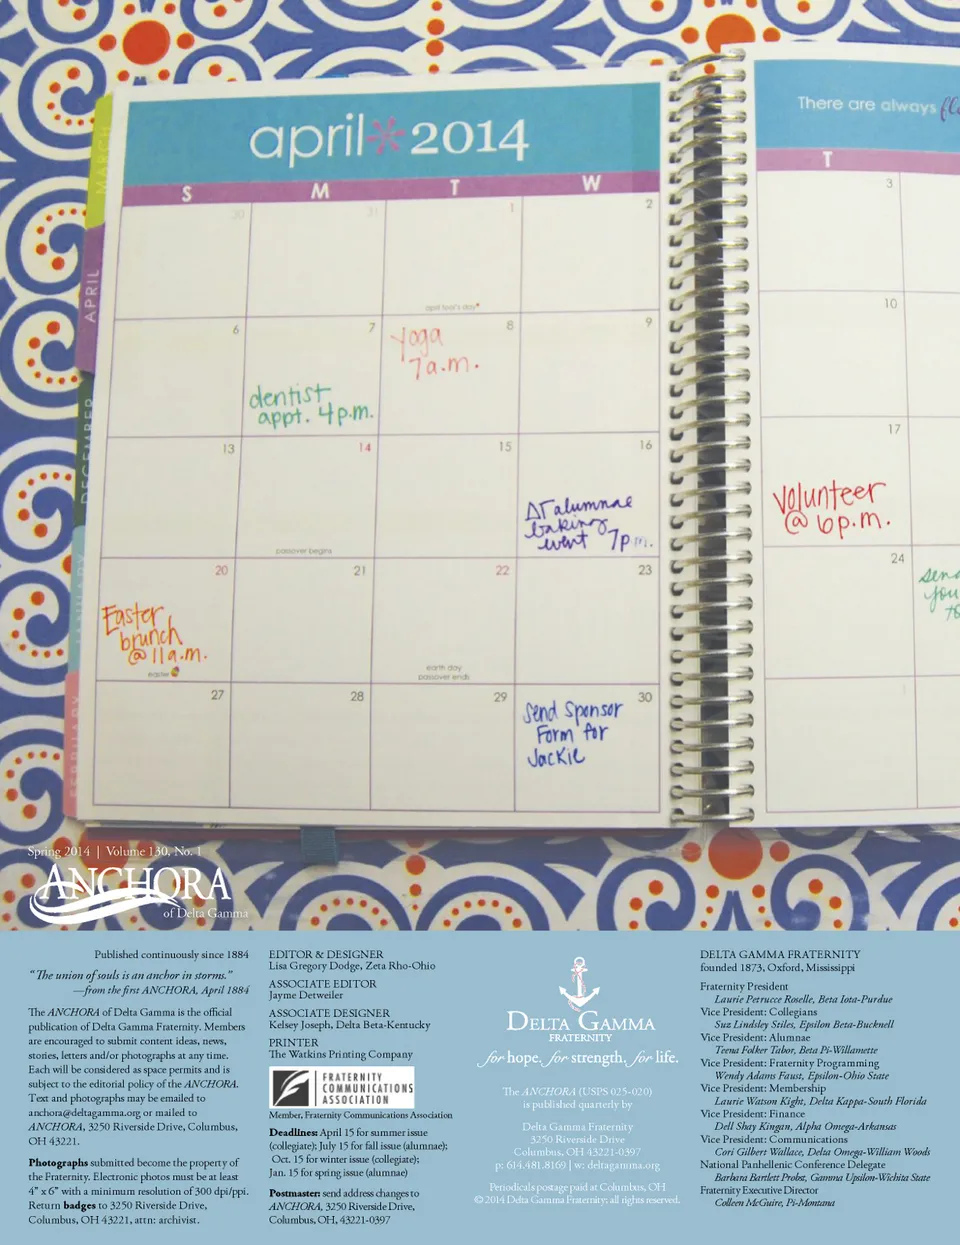 april * 2014
S M T W
There are always
T
MARCH
APRIL
DECEMBER
JANUARY
FEBRUARY
30 31 1 2 3
april fool's day*
6 7 8 9 10
yoga
7 a.m.
dentist
appt. 4 p.m.
13 14 15 16 17
passover begins
ΔΓ alumnae
baking
event 7 p.m.
volunteer
@ 6 p.m.
20 21 22 23 24
Easter
brunch
@ 11 a.m.
easter
earth day
passover ends
send
you
to
27 28 29 30 1
Send Sponsor
Form for
Jackie
Spring 2014 | Volume 130, No. 1
ANCHORA
of Delta Gamma
Published continuously since 1884
“The union of souls is an anchor in storms.”
—from the first ANCHORA, April 1884
The ANCHORA of Delta Gamma is the official
publication of Delta Gamma Fraternity. Members
are encouraged to submit content ideas, news,
stories, letters and/or photographs at any time.
Each will be considered as space permits and is
subject to the editorial policy of the ANCHORA.
Text and photographs may be emailed to
anchora@deltagamma.org or mailed to
ANCHORA, 3250 Riverside Drive, Columbus,
OH 43221.
Photographs submitted become the property of
the Fraternity. Electronic photos must be at least
4” x 6” with a minimum resolution of 300 dpi/ppi.
Return badges to 3250 Riverside Drive,
Columbus, OH 43221, attn: archivist.
EDITOR & DESIGNER
Lisa Gregory Dodge, Zeta Rho-Ohio
ASSOCIATE EDITOR
Jayme Detweiler
ASSOCIATE DESIGNER
Kelsey Joseph, Delta Beta-Kentucky
PRINTER
The Watkins Printing Company
FRATERNITY
COMMUNICATIONS
ASSOCIATION
Member, Fraternity Communications Association
Deadlines: April 15 for summer issue
(collegiate); July 15 for fall issue (alumnae);
Oct. 15 for winter issue (collegiate);
Jan. 15 for spring issue (alumnae)
Postmaster: send address changes to
ANCHORA, 3250 Riverside Drive,
Columbus, OH, 43221-0397
DELTA GAMMA
FRATERNITY
for hope. for strength. for life.
The ANCHORA (USPS 025-020)
is published quarterly by
Delta Gamma Fraternity
3250 Riverside Drive
Columbus, OH 43221-0397
p: 614.481.8169 | w: deltagamma.org
Periodicals postage paid at Columbus, OH
© 2014 Delta Gamma Fraternity; all rights reserved.
DELTA GAMMA FRATERNITY
founded 1873, Oxford, Mississippi
Fraternity President
Laurie Petrucce Roselle, Beta Iota-Purdue
Vice President: Collegians
Suz Lindsley Stiles, Epsilon Beta-Bucknell
Vice President: Alumnae
Teena Folker Tabor, Beta Pi-Willamette
Vice President: Fraternity Programming
Wendy Adams Faust, Epsilon-Ohio State
Vice President: Membership
Laurie Watson Kight, Delta Kappa-South Florida
Vice President: Finance
Dell Shay Kingan, Alpha Omega-Arkansas
Vice President: Communications
Cori Gilbert Wallace, Delta Omega-William Woods
National Panhellenic Conference Delegate
Barbara Bartlett Probst, Gamma Upsilon-Wichita State
Fraternity Executive Director
Colleen McGuire, Pi-Montana